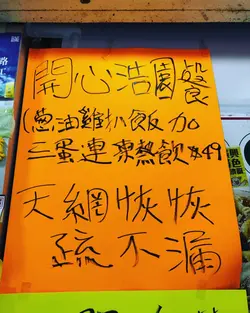 開心浩園餐
(蔥油雞扒飯加
二蛋連凍熱飲$49
天網恢恢
疏不漏